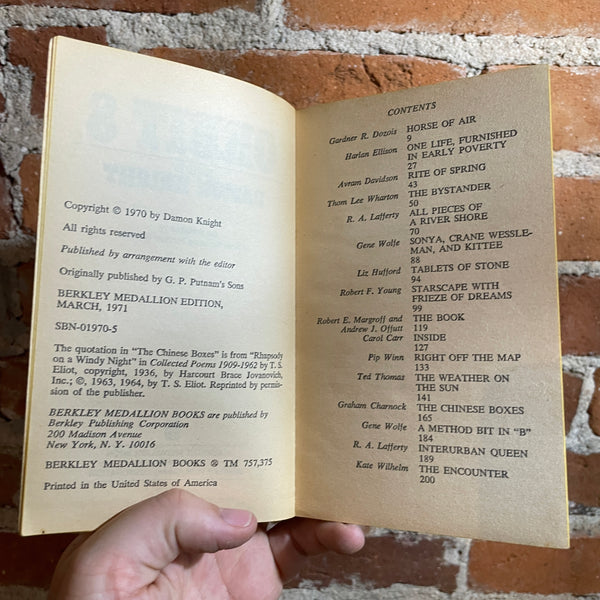 Copyright © 1970 by Damon Knight
All rights reserved
Published by arrangement with the editor
Originally published by G. P. Putnam's Sons
BERKLEY MEDALLION EDITION,
MARCH, 1971
SBN-01970-5
The quotation in "The Chinese Boxes" is from "Rhapsody
on a Windy Night" in Collected Poems 1909-1962 by T. S.
Eliot, copyright, 1936, by Harcourt Brace Jovanovich,
Inc.; ©, 1963, 1964, by T. S. Eliot. Reprinted by permis-
sion of the publisher.
BERKLEY MEDALLION BOOKS are published by
Berkley Publishing Corporation
200 Madison Avenue
New York, N. Y. 10016
BERKLEY MEDALLION BOOKS ® TM 757,375
Printed in the United States of America
CONTENTS
Gardner R. Dozois HORSE OF AIR
9
Harlan Ellison ONE LIFE, FURNISHED
IN EARLY POVERTY
27
Avram Davidson RITE OF SPRING
43
Thom Lee Wharton THE BYSTANDER
50
R. A. Lafferty ALL PIECES OF
A RIVER SHORE
70
Gene Wolfe SONYA, CRANE WESSLE-
MAN, AND KITTEE
88
Liz Hufford TABLETS OF STONE
94
Robert F. Young STARSCAPE WITH
FRIEZE OF DREAMS
99
Robert E. Margroff and THE BOOK
Andrew J. Offutt 119
Carol Carr INSIDE
127
Pip Winn RIGHT OFF THE MAP
133
Ted Thomas THE WEATHER ON
THE SUN
141
Graham Charnock THE CHINESE BOXES
165
Gene Wolfe A METHOD BIT IN "B"
184
R. A. Lafferty INTERURBAN QUEEN
189
Kate Wilhelm THE ENCOUNTER
200